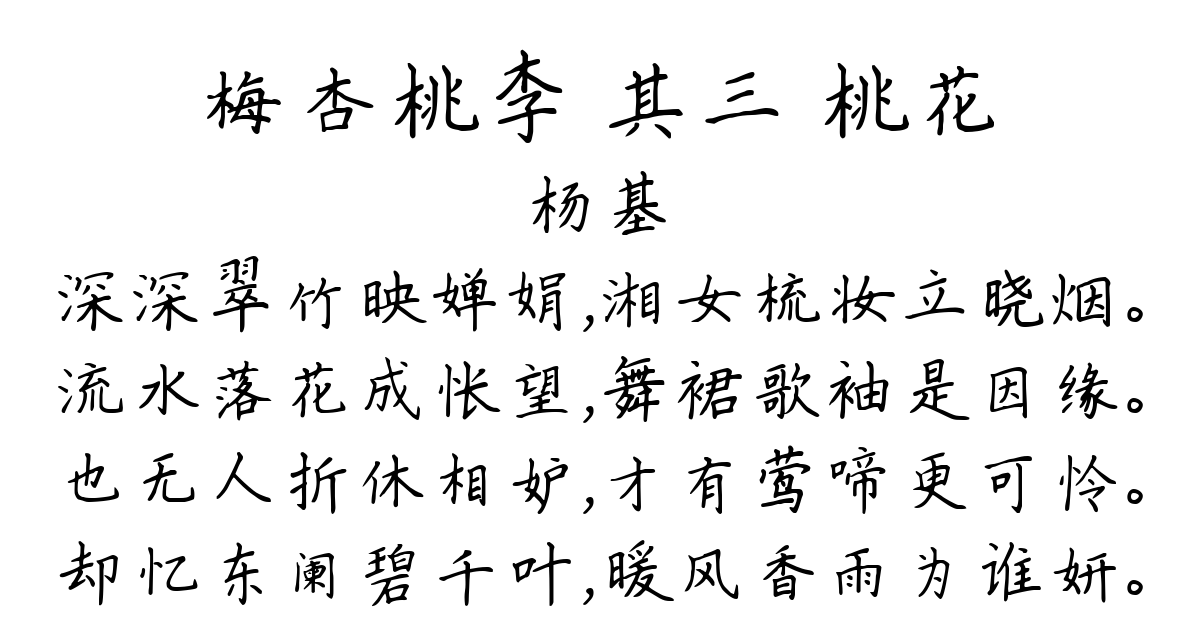 梅杏桃李 其三 桃花
杨基
深深翠竹映婵娟,湘女梳妆立晓烟。
流水落花成怅望,舞裙歌袖是因缘。
也无人折休相妒,才有莺啼更可怜。
却忆东阑碧千叶,暖风香雨为谁妍。